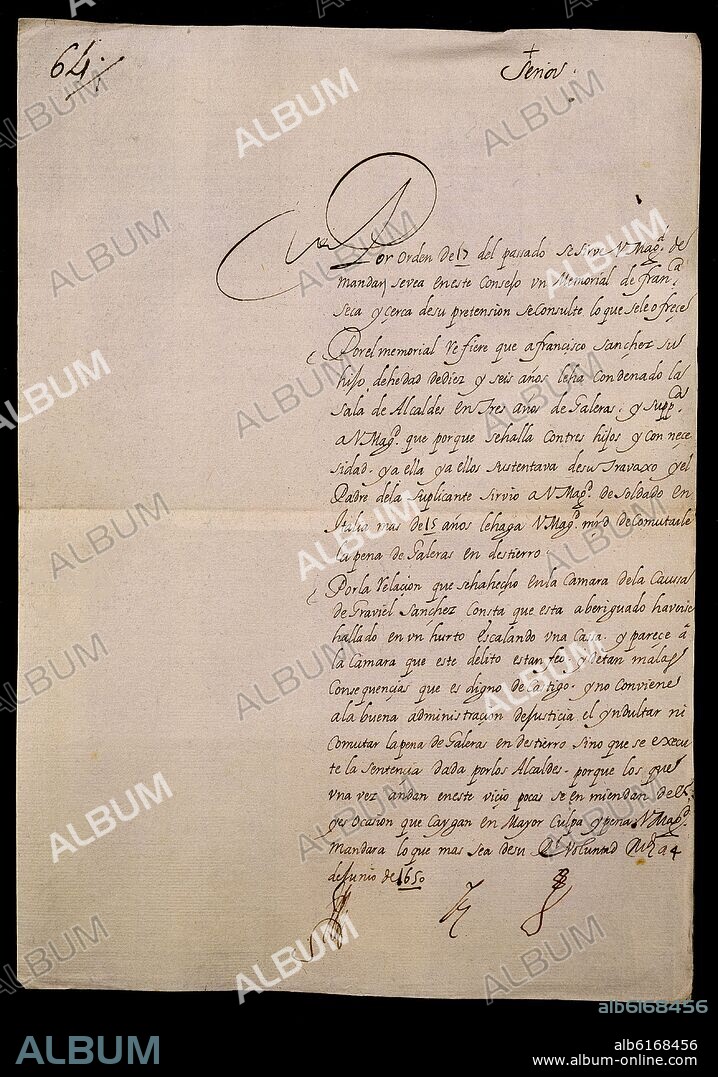 64
+
Señor.
Por orden de 17 del passado se sirve V Mag.d de
mandar se vea en este Consejo un Memorial de fran.ca
seca y çerca de su pretension se Consulte lo que se le ofreçe
Por el memorial refiere que a francisco Sanchez su
hijo de hedad de diez y seis años le ha Condenado la
sala de Alcaldes en Tres años de Galeras. y supp.ca
a V Mag.d que porque se halla con tres hijos y con neçe
sidad. y a ella y a ellos sustentava de su Travaxo y el
Padre de la suplicante sirvio a V Mag.d de soldado en
Italia mas de 15 años le haga V Mag.d mrd de Comutarle
la pena de Galeras en destierro.
Por la relaçion que se ha hecho en la Camara de la Caussa
de Graviel Sanchez Consta que esta aberiguado haverse
hallado en un hurto escalando una Casa. y parece a
la Camara que este delito es tan feo y de tan malas
Consequençias que es digno de Castigo. y no Conviene
a la buena administraçion de Justiçia el yndultar ni
Comutar la pena de Galeras en destierro sino que se execu
te la sentençia dada por los Alcaldes. porque los que
una vez andan en este viçio pocas se enmiendan
y es ocasion que Caygan en Mayor Culpa y pena V Mag.d
Mandara lo que mas sea de su Rl Voluntad a 4
de Junio de 1650
ALBUM
alb6168456
ALBUM
alb6168456
www.album-online.com